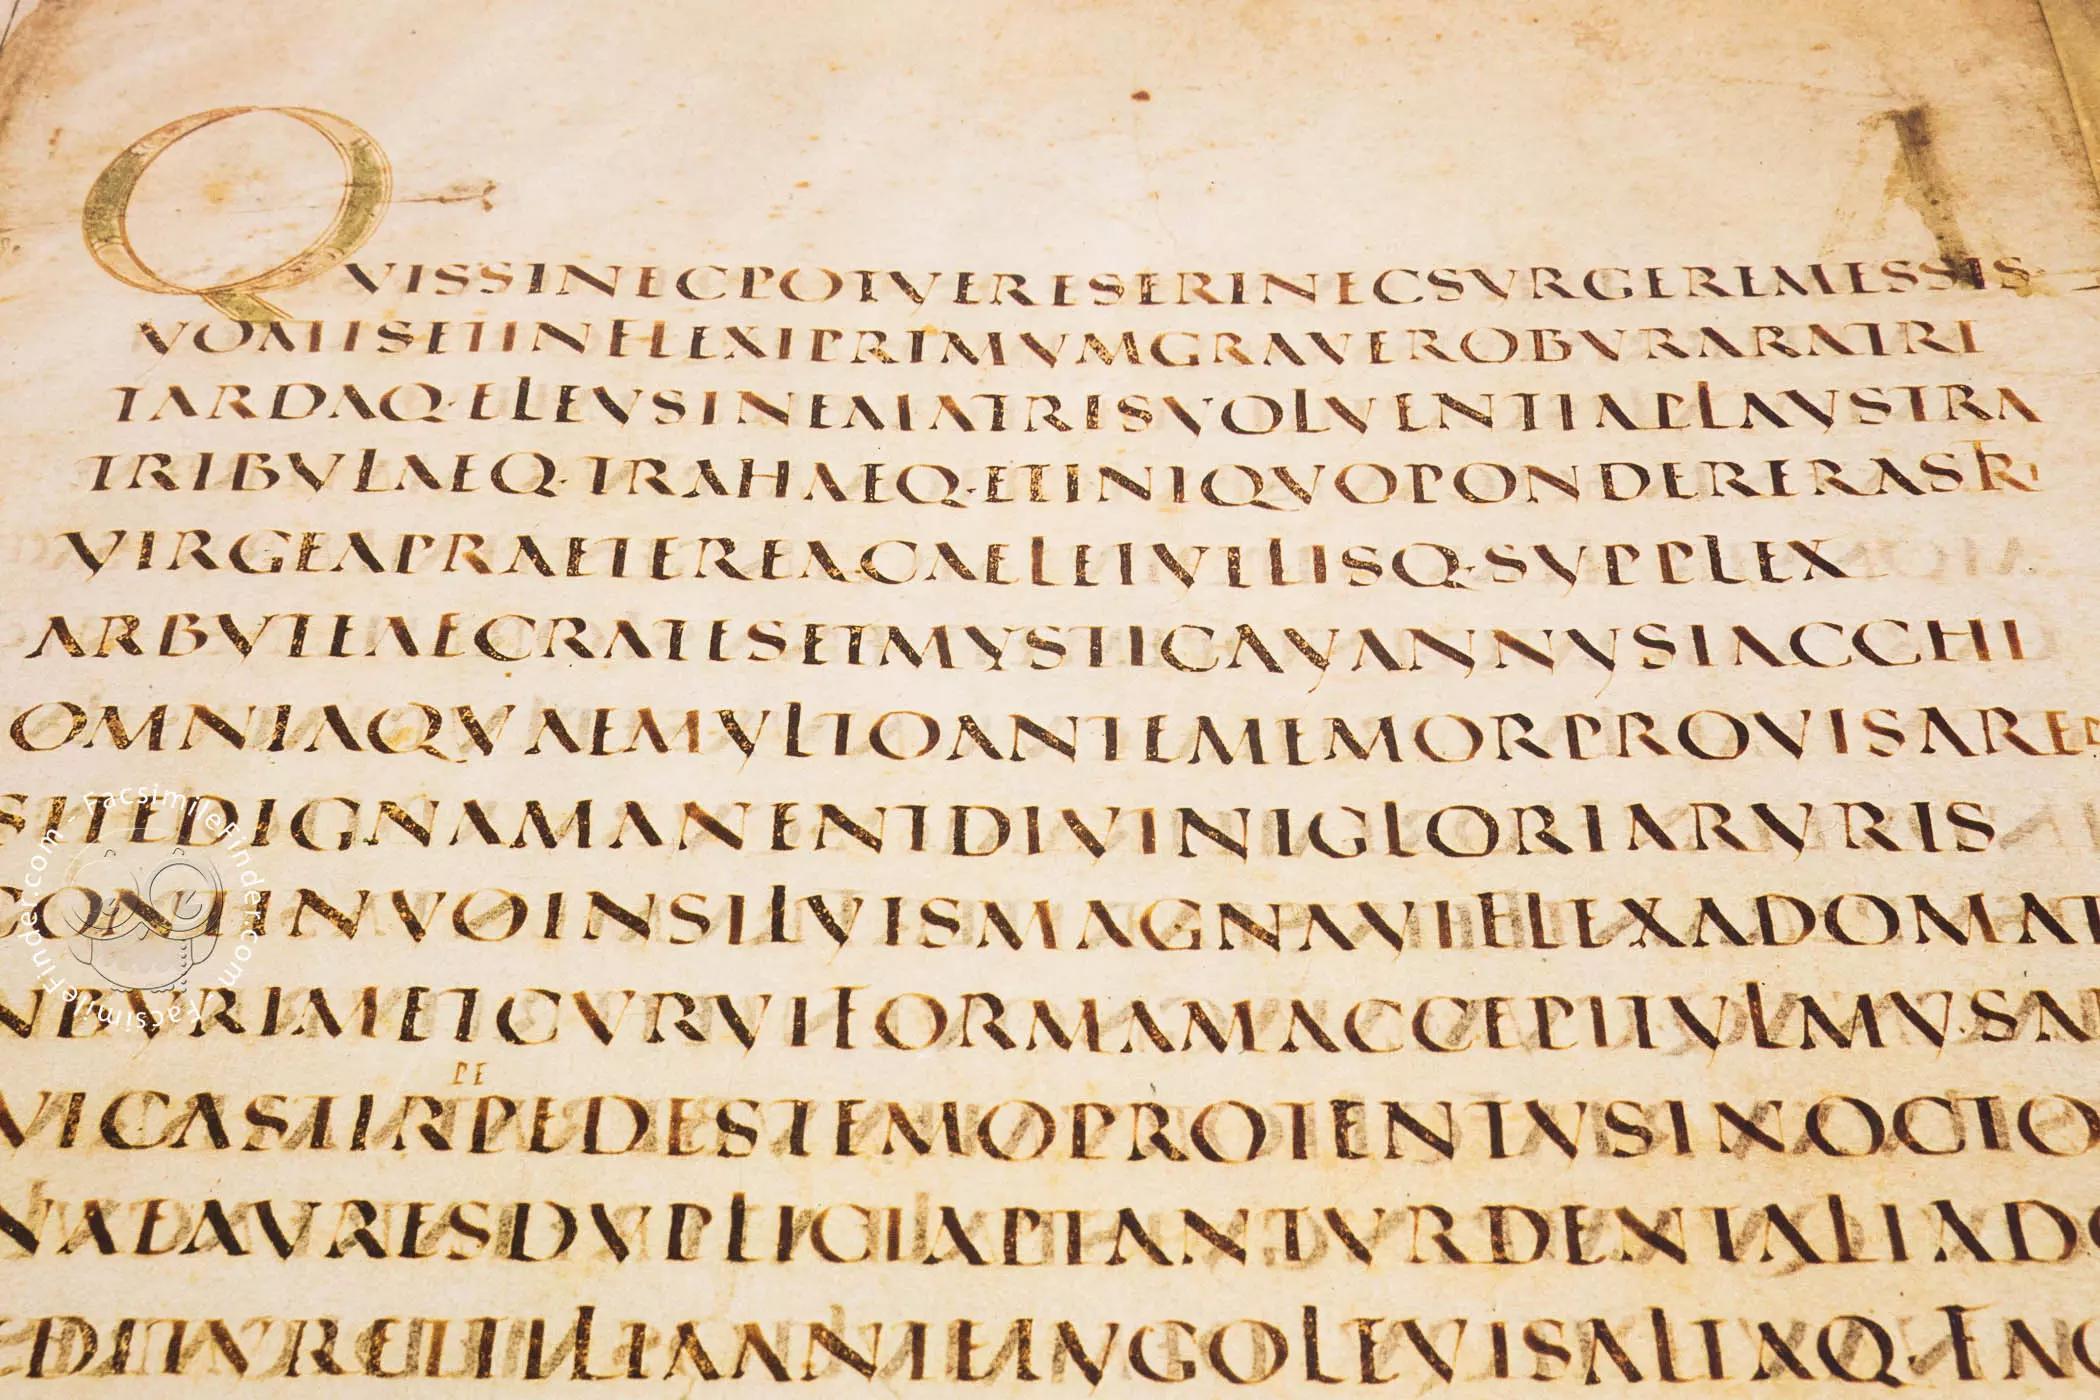 QVISSINECPOTVERESERINECSVRGEREMESSIS
VOMISETINFLEXIPRIMVMGRAVEROBVRARATRI
TARDAQ·ELEVSINEMATRISVOLVENTIAPLAVSTRA
TRIBVLAEQ·TRAHAEQ·ETINIQVOPONDERERASTRI
VIRGEAPRAETEREACAELEIVILISQ·SVPPLEX
ARBVTEAECRATESETMYSTICAVANNVSIACCHI
OMNIAQVAEMVLTOANTEMEMORPROVISAREP
SITEDIGNAMANENTDIVINIGLORIARVRIS
CONTINVOINSILVISMAGNAVIFLEXADOMAT
NBVRIMETCVRVIFORMAMACCEPITVLMVSA
PE
VICASTIRPEDESTEMOPROTENTVSINOCTO
NAEAVRESDVPLICIAPTANTVRDENTALIADO
EDITVRETTILIAANTEIVGOLEVISALTAQ·FAG
FacsimileFinder.com - FacsimileFinder.com